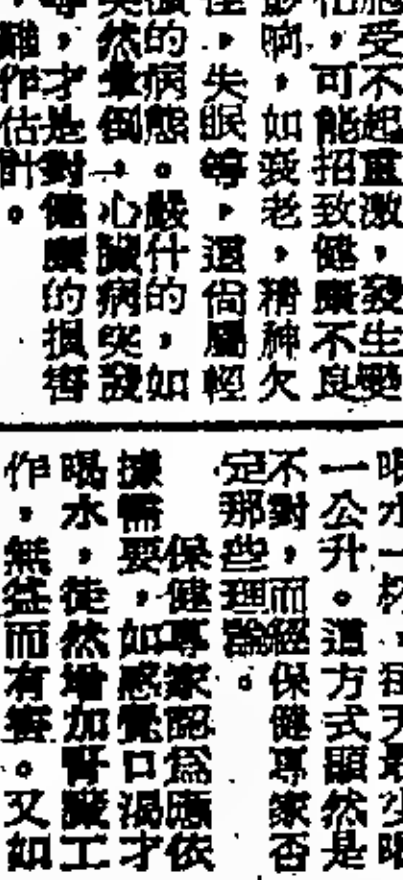 胞受不起重激，發生變
化，可能招致健康不良
影响，如衰老，精神欠
佳，失眠等，還尙屬輕
微的病態。嚴什的，如
突然暈倒，心臟病突發
等，才是對健康的損害
，難作估計。
喝水一杯，每天最少喝
一公升。這方式顯然是
不對，而經保健專家否
定那些理論。
保健專家認爲應依
據需要，如感覺口渴才
喝水，徒然增加腎臟工
作，無益而有害。又如